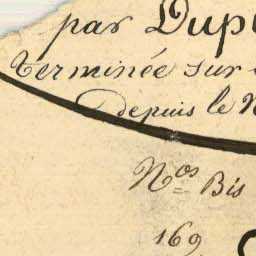 par Dup
Terminée sur
depuis le N
Nos Bis
169